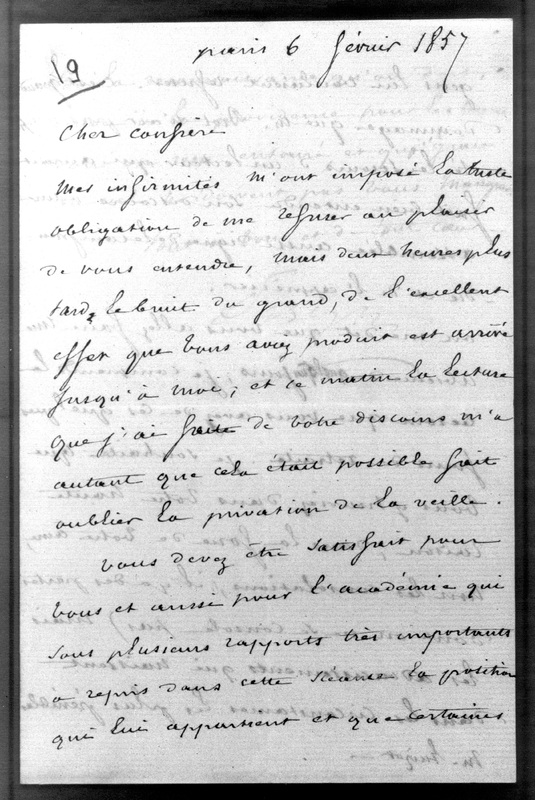 paris 6 février 1857
19
Cher confrere
Mes infirmités m'ont imposé la triste
obligation de me refuser au plaisir
de vous entendre, mais deux heures plus
tard, le bruit du grand, de l'excellent
effet que vous avez produit est arrivé
jusqu'à moi; et ce matin la lecture
que j'ai faite de votre discours m'a
autant que cela était possible fait
oublier la privation de la veille.
vous devez être satisfait pour
vous et aussi pour l'académie qui
sous plusieurs rapports très importants
a repris dans cette séance la position
qui lui appartient et que certaines